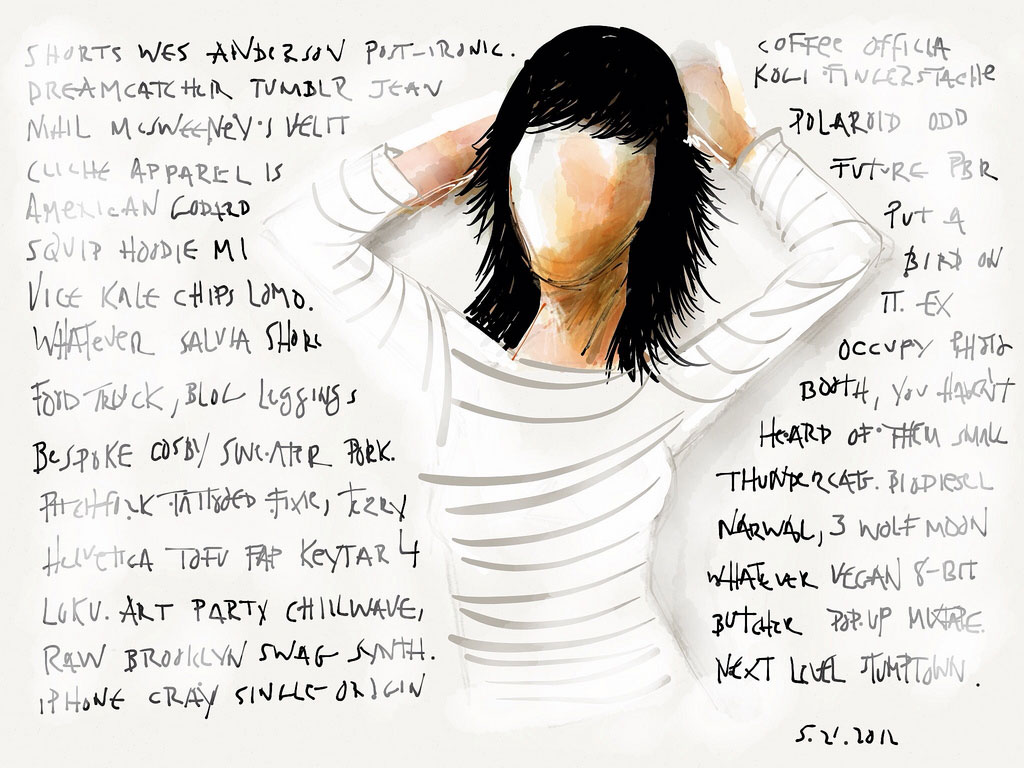 SHORTS WES ANDERSON POST-IRONIC.
DREAMCATCHER TUMBLR JEAN
NIHIL McSWEENEY'S VELIT
CLICHE APPAREL IS
AMERICAN GODARD
SQUID HOODIE MI
VICE KALE CHIPS LOMO.
WHATEVER SALVIA SHORE
FOOD TRUCK, BLOG LEGGINGS
BESPOKE COSBY SWEATER PORK.
PITCHFORK TATTOOED FIXIE, TERRY
HELVETICA TOFU FAP KEYTAR 4
LOKO. ART PARTY CHILLWAVE,
RAW BROOKLYN SWAG SYNTH.
IPHONE CRAY SINGLE-ORIGIN
COFFEE OFFICIA
KOLI FINGERSTACHE
POLAROID ODD
FUTURE PBR
PUT A
BIRD ON
IT. EX
OCCUPY PHOTO
BOOTH, YOU HAVEN'T
HEARD OF THEM SMALL
THUNDERCATS. BIODIESEL
NARWAL, 3 WOLF MOON
WHATEVER VEGAN 8-BIT
BUTCHER POP-UP MIXTAPE.
NEXT LEVEL STUMPTOWN.
5.21.2012